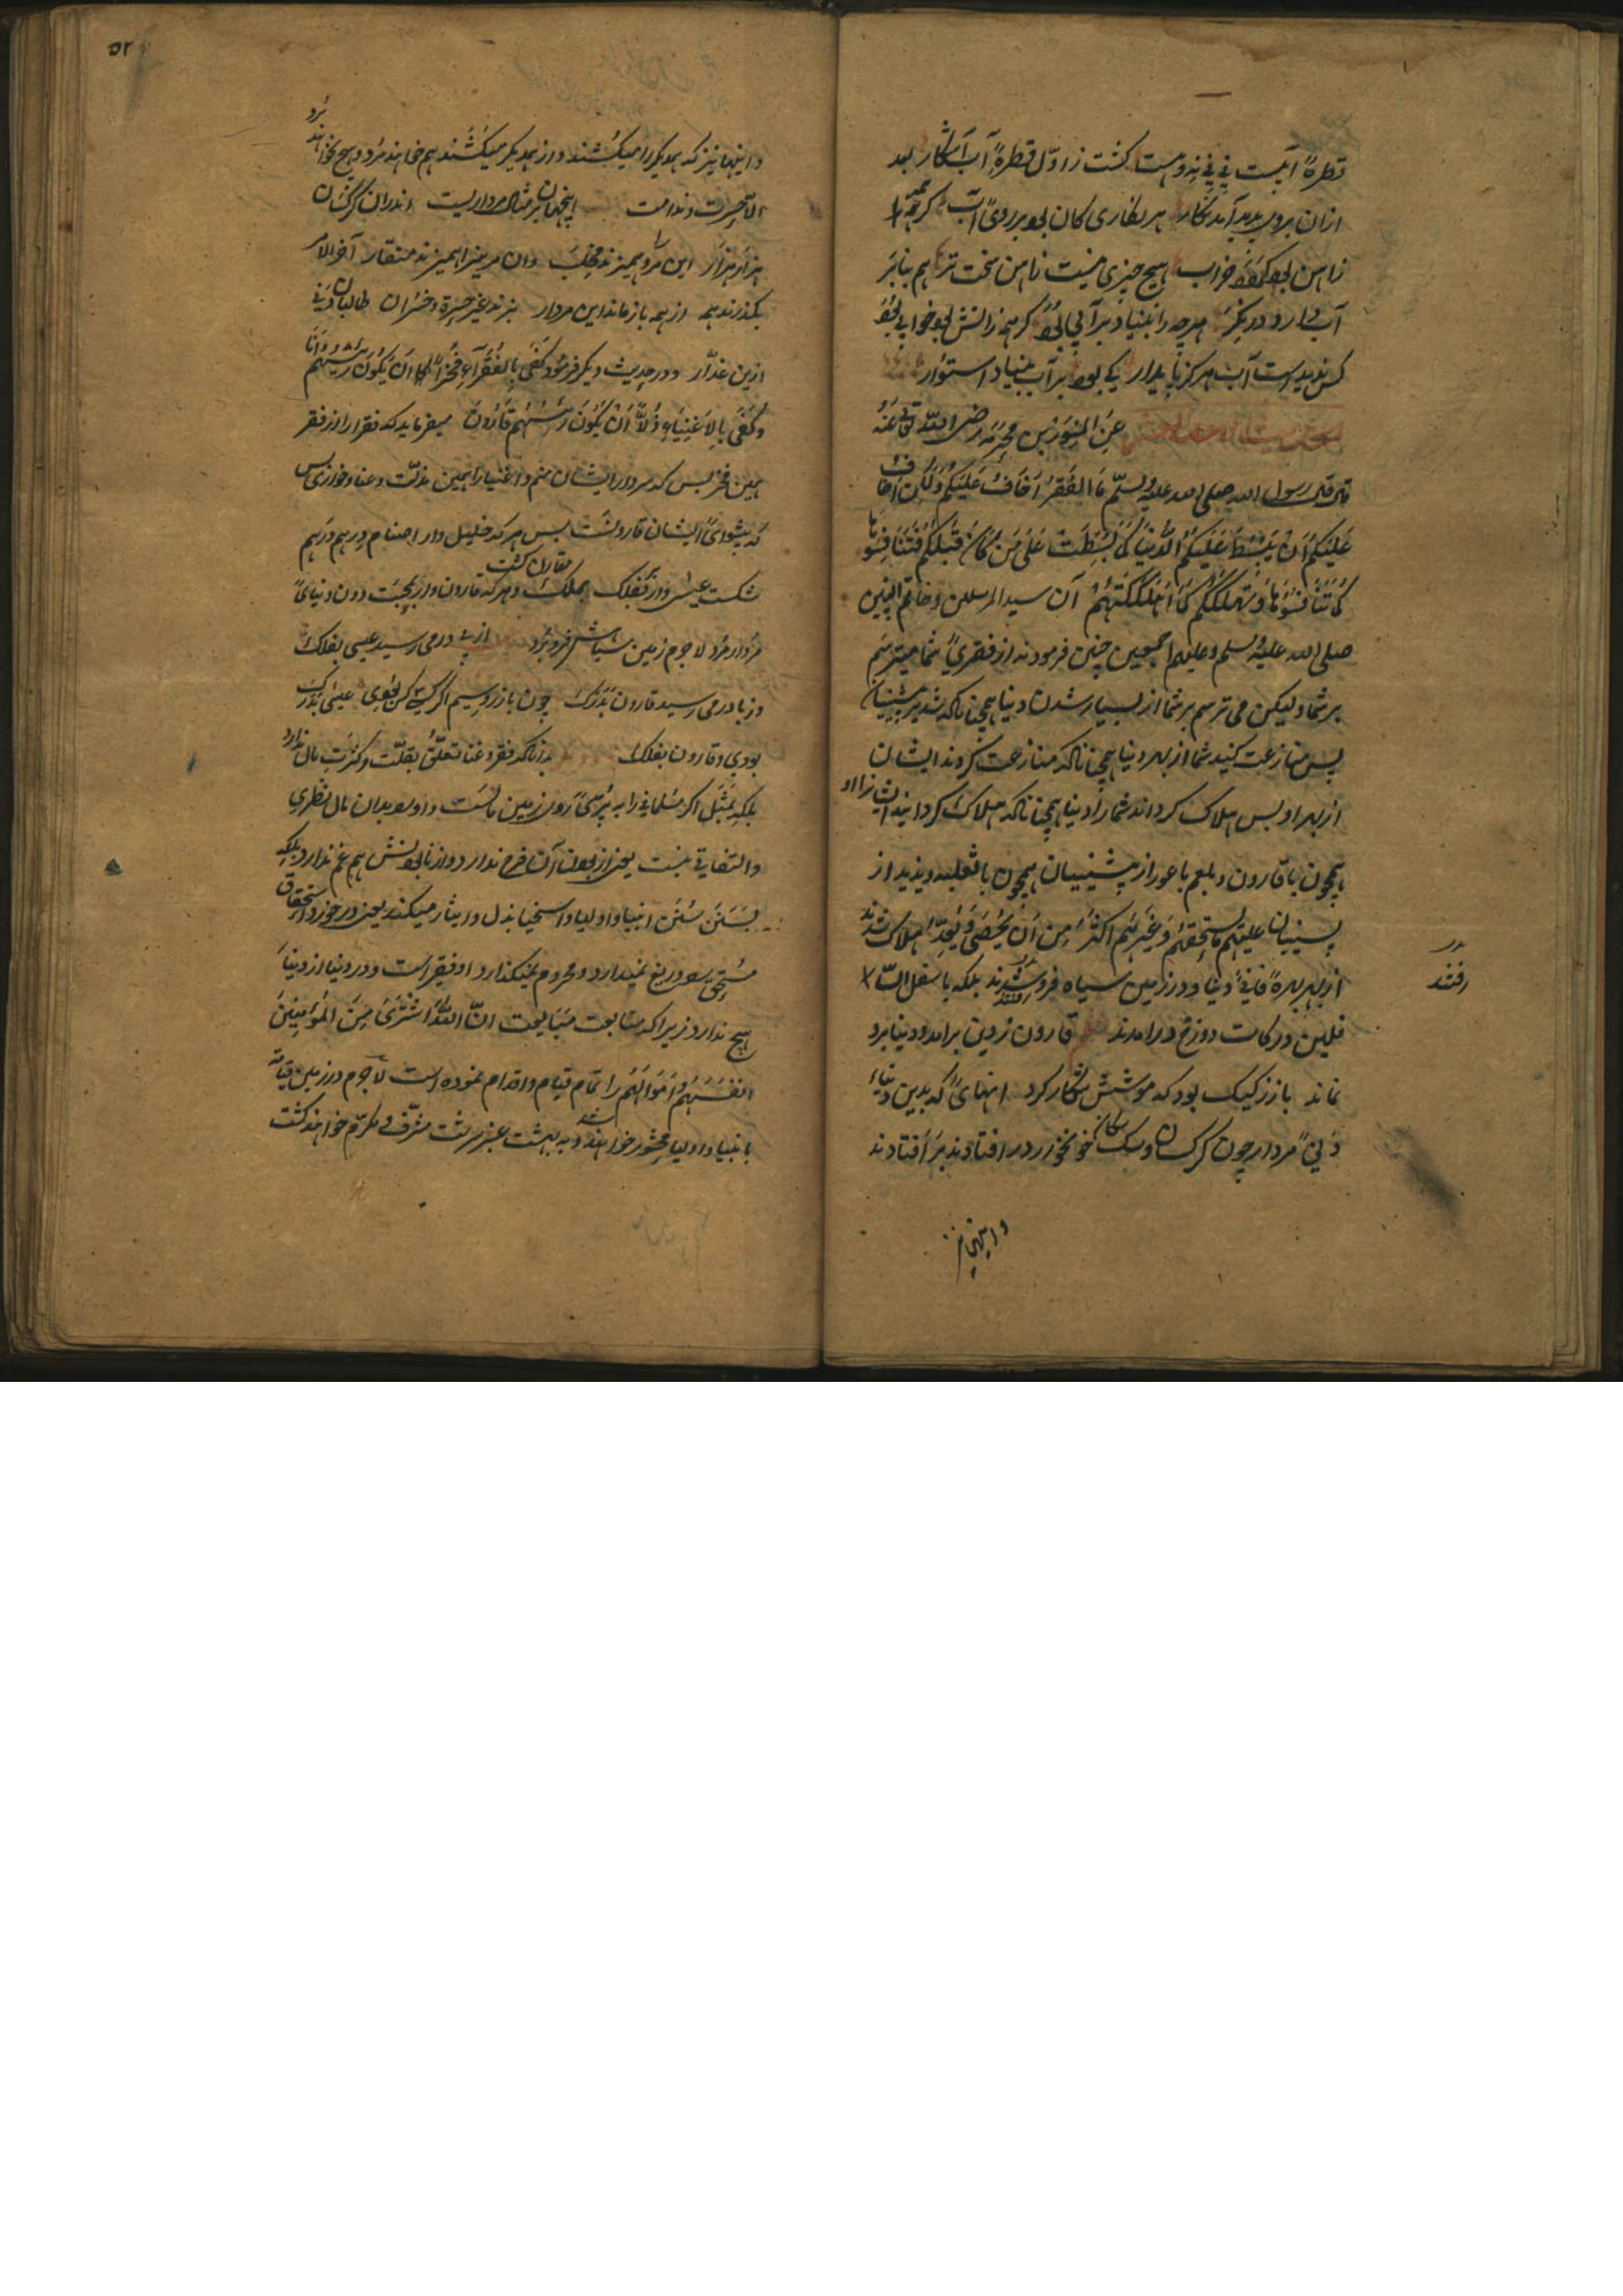 قطرهٔ آبیست نی نی نه و هست گشت ز اول قطرهٔ آب آشکار بعد
ازان بروی پدید آمد نگار هر نگاری کان بود بر روی آب گر همه
زاهن بود گردد خراب هیچ چیزی نیست زاهن سخت تر هم بنا بر
آب دارد در نگر هرچه را بنیاد بر آبی بود گر همه زاتش بود خوابی بود
کس ندیدست آب هرگز پایدار کی بود بر آب بنیاد استوار
عن المسور بن مخرمه رضی الله تعالی عنه
قال قال رسول الله صلی الله علیه وسلم ما الفقر اخاف علیکم ولکن اخاف
علیکم ان یبسط علیکم الدنیا کما بسطت علی من کان قبلکم فتنافسوها
کما تنافسوها وتهلککم کما اهلکتهم آن سید المرسلین وخاتم النبیین
صلی الله علیه وسلم وعلیهم اجمعین چنین فرمودند از فقری شما میترسم
بر شما ولیکن می ترسم بر شما از بسیار شدن دنیا همچنانکه شد بر پیشینیان
پس منازعت کنید شما از بهر دنیا همچنانکه منازعت کردند ایشان
از بهر او پس هلاک گرداند شما را دنیا همچنانکه هلاک گردانید ایشانرا او
همچون با قارون و بلعم باعور از پیشینیان همچون با ثعلبه ویزید از
پسینیان علیهم ما یستحقهم وغیرهم اکثر من ان یحصی ویعد هلاک شدند
از بهر بهرهٔ فانیٔ دنیا و در زمین سیاه فرو شدند بلکه باسفل السا
فلین درکات دوزخ درامدند قارون ز دین برامد و دنیا برو
نماند بازز کیک بود که موشش شکار کرد اینهای که بدین دنیاء
دنی مردار چون کرکسان و سکان خونخوار در افتادند بر افتادند
در
رفتند
و اینها نیز
۵۲
و اینها نیز که همدیگر را میکشند و از همدیگر میکشند هم خواهند مرد و هیچ نخواهند برد
الا حسرت و ندامت اینجهان بر مثال مرداریست اندران کرکسان
هزار هزار این مرو را همیزند مخلب وان مرینرا همیزند منقار آخر الامر
بگذرند همه از همه باز ماند این مردار نبرند غیر حسرة و خسران طالبان دنی
ازین غدار و در حدیث دیگر فرموده کفی بالفقراء فخرا ان یکون رئیسهم انا
وکفی بالاغنیاء ذلا ان یکون رئیسهم قارون میفرماید که فقرا را از فقر
همین فخر بس که سردار ایشان منم و اغنیا را همین مذلت و عنا و خواری بس
که پیشوای ایشان قارونست پس هر که خلیل وار اصنام درهم درهم
شکست عیسی وار بفلک مقارن گشت و هر که قارون وار بمحبت دون دنیای
مردار مرد لاجرم زمین سیاهش فرو برد از درمی رسید عیسی بفلک
وز بادرمی رسید قارون بدرک چون بازر و سیم اگر کسی کس بودی عیسی بدرک
بودی و قارون بفلک بدانکه فقر و غنا تعلق بقلت و کثرت مال ندارد
بلکه بمثل اگر مسلمانی را به پری روی زمین مالست و او سوی بدان مال نظری
والتفاتی نیست یعنی از بودن آن فرح ندارد و از نابودنش هم غم ندارد بلکه
بسنن سنن انبیا و اولیا و اسخیا بذل و ایثار میکند یعنی در خورد استحقاق
مستحق سود دریغ نمیدارد و محروم نمیگذارد او فقیر است و در دنیا از دنیا
هیچ ندارد زیراکه متابعت مبایعت ان الله اشتری من المؤمنین
انفسهم و اموالهم را تمام قیام و اقدام نموده است لاجرم در زمین قیامة
با انبیا و اولیا محشور خواهند شد و به بهشت عنبر سرشت مشرف و مکرم خواهند گشت